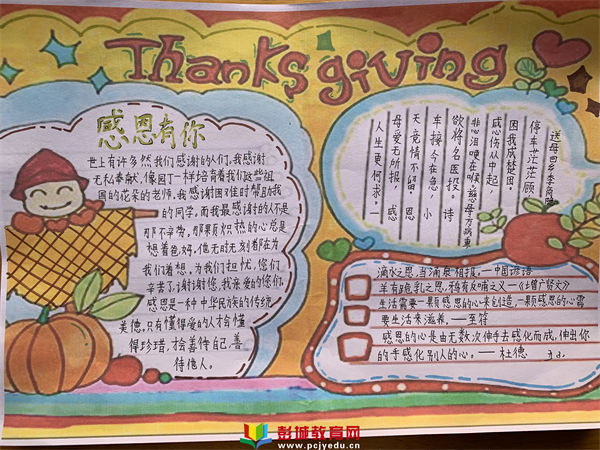 Thanksgiving
感恩有你
世上有许多然我们感谢的人们,我感谢
无私奉献,像园丁一样培育着我们这些祖
国的花朵的老师,我感谢困难时帮助我
的同学,而我最感谢的人不是
那不辛劳,那颗炽热的心总是
想着爸妈,他无时无刻都在为
我们着想,为我们担忧,您们
辛苦了,谢谢您,我亲爱的您们,
感恩是一种中华民族的传统
美德,只有懂得爱的人才会懂
得珍惜,才会善待自己,善
待他人。
送母回乡李商隐
停车茫茫顾,
困我成楚囚。
感伤从中起,
悲泪哽在喉。慈母方病重
欲将名医投。诗
车接今在急,小
天竟情不留!恩
母爱无所报,感
人生更何求。一
滴水之恩,当涌泉相报。—中国谚语
羊有跪乳之恩,鸦有反哺之义—《增广贤文》
生活需要一颗感恩的心来创造,一颗感恩的心需
要生活来滋养。——王符
感恩的心是由无数次伸手去感化而成,伸出你
的手感化别人的心。——杜德
彭城教育网
www.pcjyedu.cn